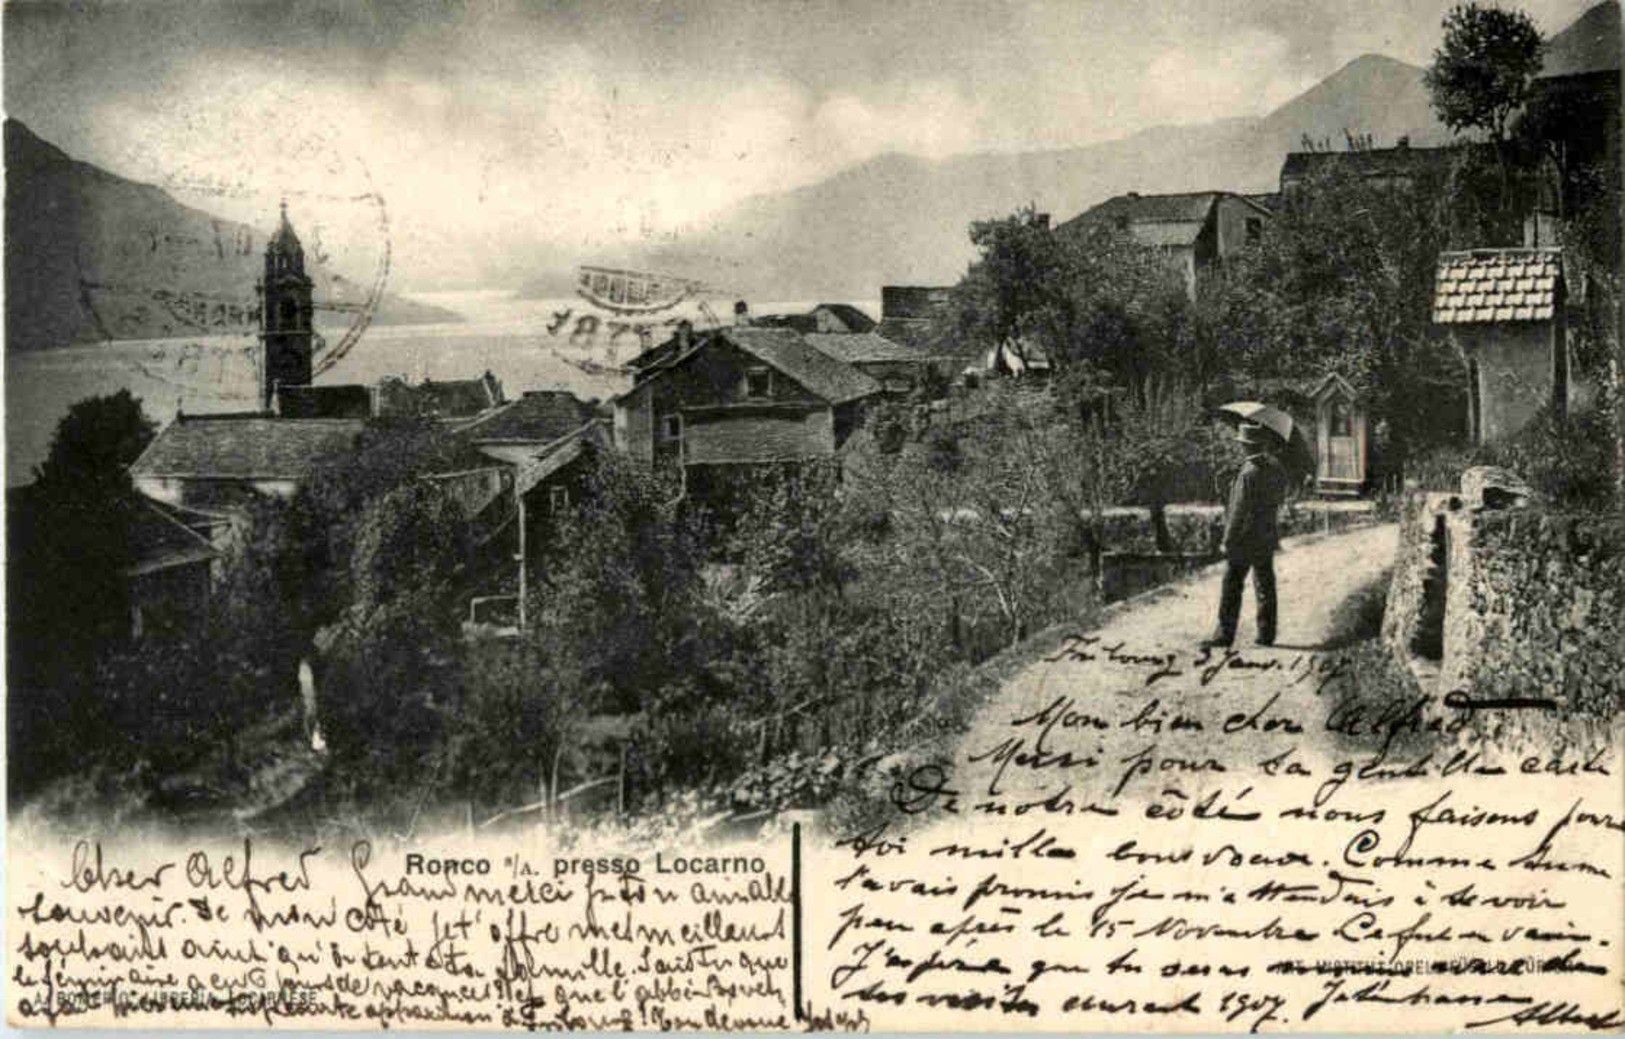 Fribourg 3 Janv. 1907
Mon bien cher Alfred.
Merci pour ta gentille carte
De notre côté nous faisons pour
toi mille bons voeux. Comme tu me
l'avais promis je m'attendais à te voir
peu après le 15 Novembre Ce fut en vain.
J'espère que tu seras moins avare de
tes visites durant 1907. Je t'embrasse
Albert
Ronco s/A. presso Locarno
Cher Alfred Grand merci pr ton aimable
souvenir. De mon côté je t'offre mes meilleurs
souhaits ainsi qu'à toute ta famille. Sais-tu que
le séminaire a eu 6 jours de vacances? et que l'abbé Bovet
a fait apparition à Fribourg! Ton dévoué Joseph